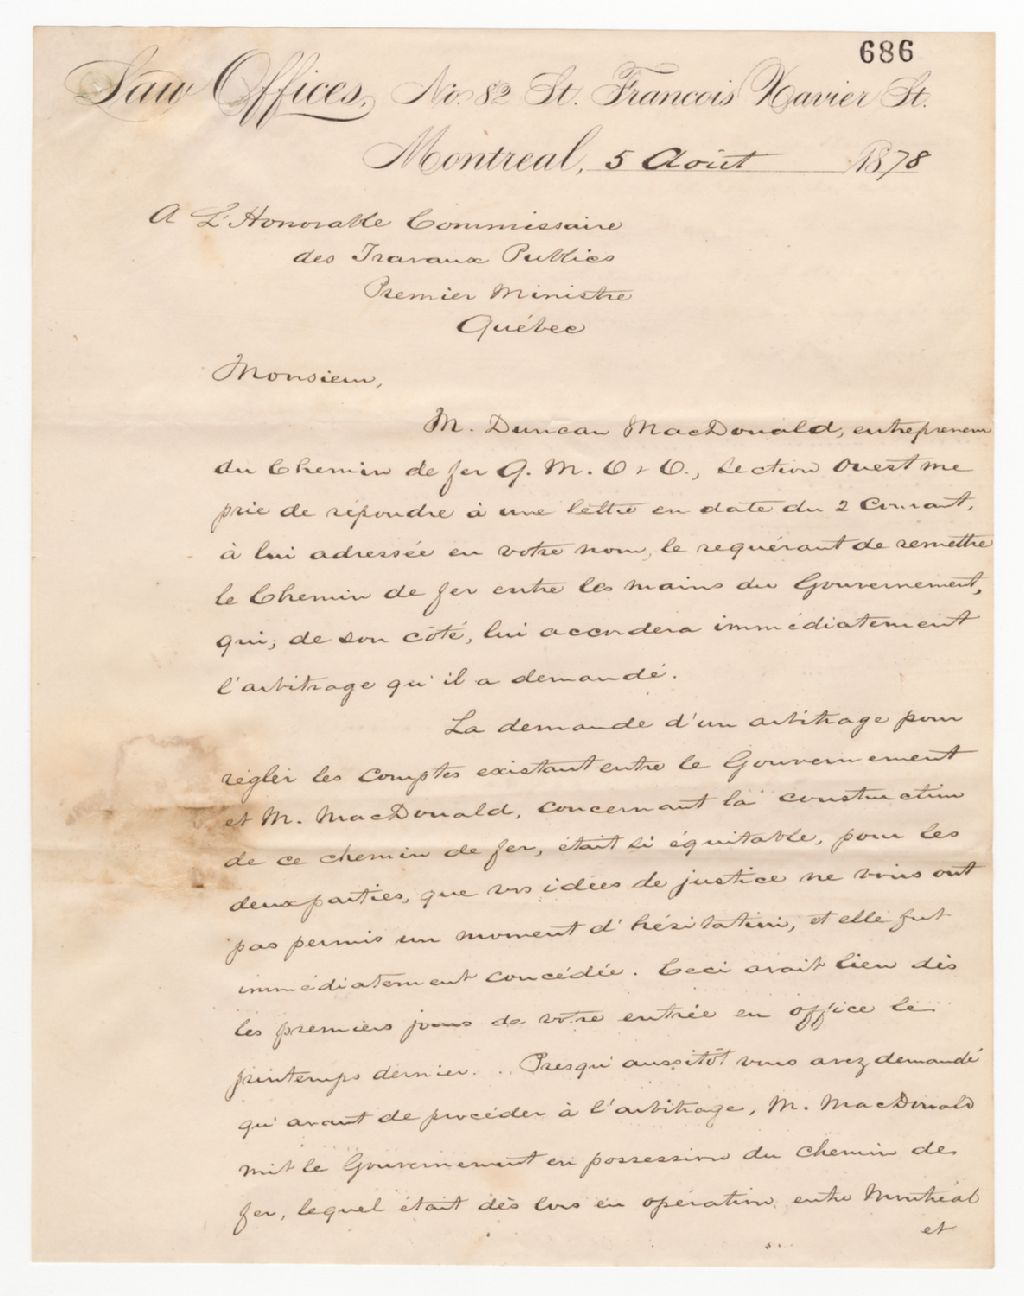 686
Law Offices, No. 82 St. Francois Xavier St.
Montreal, 5 Août 1878
A L'Honorable Commissaire
des Travaux Publics
Premier Ministre
Québec
Monsieur,
M. Duncan MacDonald, entrepreneur
du Chemin de fer Q. M. O & O., Section Ouest me
prie de répondre à une lettre en date du 2 Courant,
à lui adressée en votre nom, le requérant de remettre
le Chemin de fer entre les mains du Gouvernement,
qui, de son côté, lui accordera immédiatement
l'arbitrage qu'il a demandé.
La demande d'un arbitrage pour
régler les comptes existant entre le Gouvernement
et M. MacDonald, concernant la construction
de ce chemin de fer, était si équitable, pour les
deux parties, que vos idées de justice ne vous ont
pas permis un moment d'hésitation, et elle fut
immédiatement concédée. Ceci avait lieu dès
les premiers jours de votre entrée en office le
printemps dernier. .. Presqu'aussitôt vous avez demandé
qu'avant de procéder à l'arbitrage, M. MacDonald
mit le Gouvernement en possession du chemin de
fer, lequel était dès lors en opération, entre Montréal
et